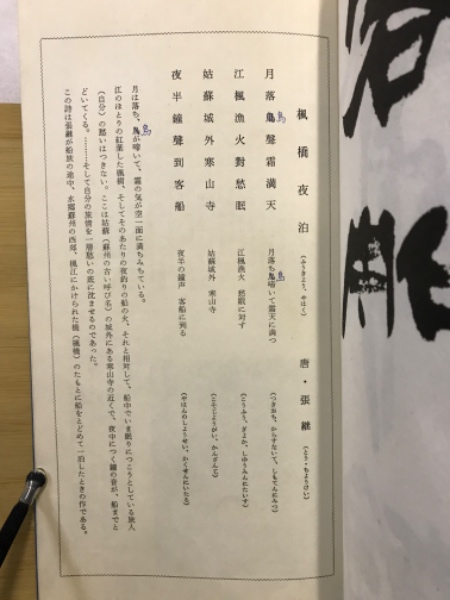 楓橋夜泊（ふうきょう、やはく） 唐・張継（とう・ちょうけい）
月落鳥聲霜満天 月落ち鳥啼いて霜天に満つ（つきおち、からすないて、しもてんにみつ）
江楓漁火對愁眠 江楓漁火 愁眠に対す（こうふう、ぎよか、しゆうみんにたいす）
姑蘇城外寒山寺 姑蘇城外 寒山寺（こそじょうがい、かんざんじ）
夜半鐘聲到客船 夜半の鐘声 客船に到る（やはんのしようせい、かくせんにいたる）
月は落ち、鳥が啼いて、霜の気が空一面に満ちみちている。
江のほとりの紅葉した楓樹、そしてそのあたりの夜釣りの船の火、それと相対して、船中でいま眠りにつこうとしている旅人
（自分）の愁いはつきない。ここは姑蘇（蘇州の古い呼び名）の城外にある寒山寺の近くで、夜中につく鐘の音が、船までと
どいてくる。………そして自分の旅情を一層愁いの底に沈ませるのであった。
この詩は張継が船旅の途中、水郷蘇州の西郊、楓江にかけられた橋（楓橋）のたもとに船をとどめて一泊したときの作である。